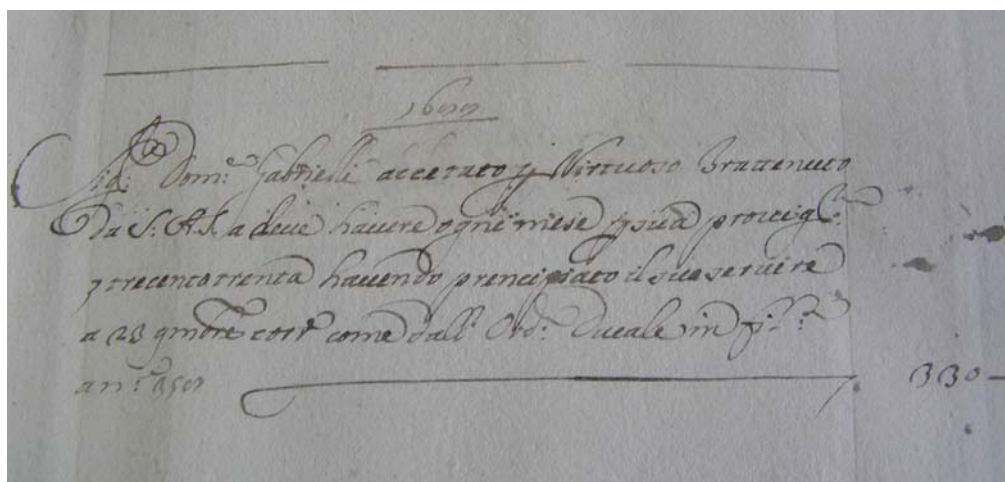 Sig.r Dom.co Gabrielli accetato p Virtuoso Trattenuto
Da S. A. S.a deue hauere ogni mese p sua prou
trecentotrenta hauendo prencipiato il suo seruire
a 23 9mbre corr come dall Ord. Ducale in
an
330